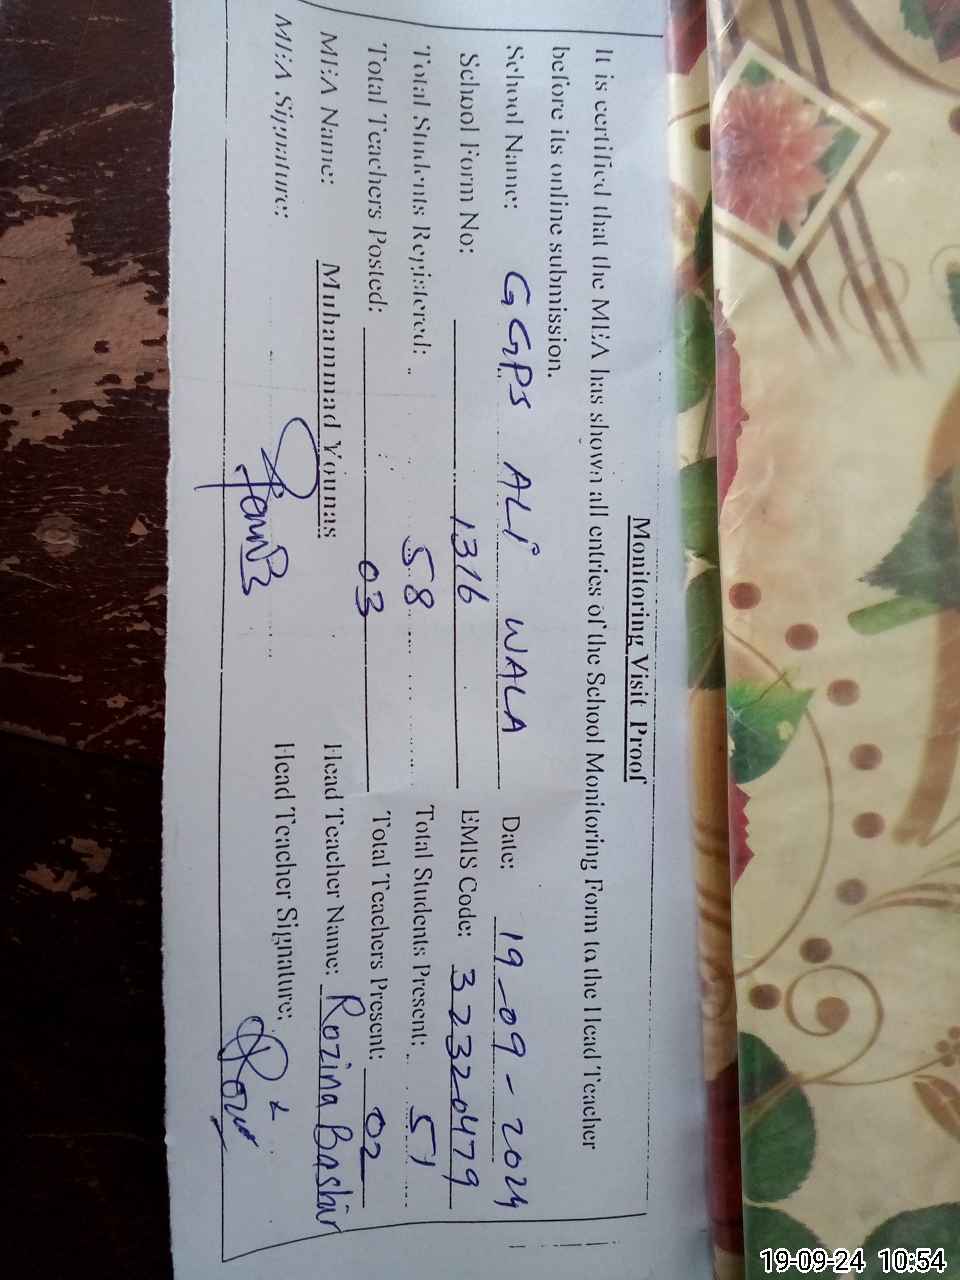 Monitoring Visit Proof
It is certified that the MEA has shown all entries of the School Monitoring Form to the Head Teacher
before its online submission.
School Name: GGPS ALI WALA Date: 19-09-2024
School Form No: 1316 EMIS Code: 32320479
Total Students Registered: 58 Total Students Present: 51
Total Teachers Posted: 03 Total Teachers Present: 02
MEA Name: Muhammad Younas Head Teacher Name: Rozina Bashir
MEA Signature: Head Teacher Signature:
19-09-24 10:54